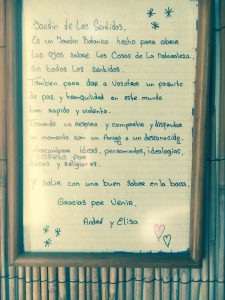 Jardín de Los Sentidos,
Es un Jardín Botánico hecho para abrir
Los ojos sobre las Cosas de La naturaleza,
en todos los sentidos.
Tambien para dar a Vosotros un poquito
de paz y tranquilidad en este mundo
tan rapido y violento.
Tomando un respiro y compartir y disfrutar
un momento con un Amigo o un desconocido,
Intercambiar ideas, pensamientos, ideologias,
y respeto por
razas y religiones.
Y salir con una buen sabor en la boca.
Gracias por Venir,
André y Elisa